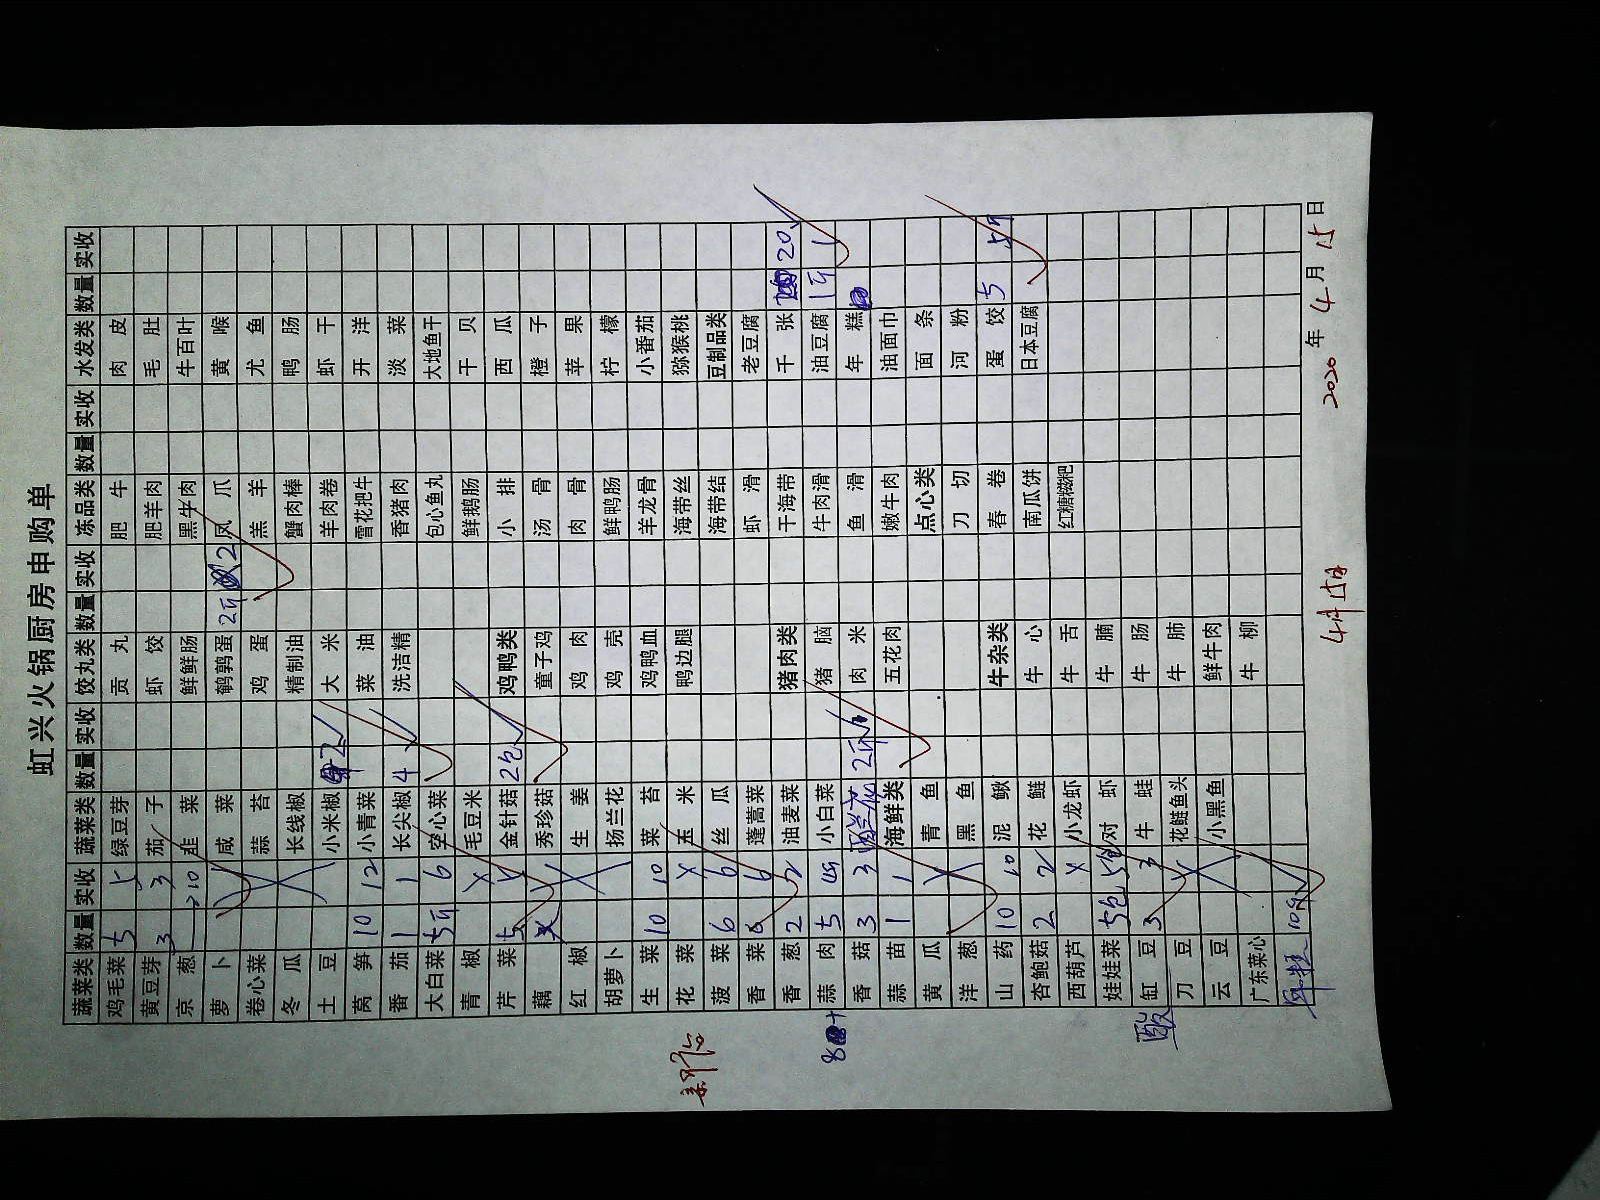 虹兴火锅厨房申购单
蔬菜类 数量 实收 蔬菜类 数量 实收 饺丸类 数量 实收 冻品类 数量 实收 水发类 数量 实收
鸡毛菜 5 5 绿豆芽 贡丸 肥牛 肉皮
黄豆芽 3 3 茄子 虾饺 肥羊肉 毛肚
京葱 10 韭菜 鲜鲜肠 黑牛肉 牛百叶
萝卜 咸菜 鹌鹑蛋 2斤 2 凤爪 黄喉
卷心菜 蒜苔 鸡蛋 羔羊 尤鱼
冬瓜 长线椒 精制油 蟹肉棒 鸭肠
土豆 小米椒 2 大米 羊肉卷 虾干
莴笋 10 12 小青菜 菜油 雪花把牛 开洋
番茄 1 1 长尖椒 4 洗洁精 香猪肉 淡菜
大白菜 5斤 6 空心菜 包心鱼丸 大地鱼干
青椒 毛豆米 鲜鹅肠 干贝
芹菜 5 金针菇 2包 鸡鸭类 小排 西瓜
藕 秀珍菇 童子鸡 汤骨 橙子
红椒 生姜 鸡肉 肉骨 苹果
胡萝卜 扬兰花 鸡壳 鲜鸭肠 柠檬
生菜 10 10 菜苔 鸡鸭血 羊龙骨 小番茄
花菜 玉米 鸭边腿 海带丝 猕猴桃
菠菜 6 6 丝瓜 海带结 豆制品类
香菜 6 蓬蒿菜 虾滑 老豆腐
香葱 2 2 油麦菜 猪肉类 干海带 千张 20
蒜肉 5 小白菜 猪脑 牛肉滑 油豆腐 1斤 1
香菇 3 3 西兰花 2斤 肉米 鱼滑 年糕
蒜苗 1 1 海鲜类 五花肉 嫩牛肉 油面巾
黄瓜 青鱼 点心类 面条
洋葱 黑鱼 刀切 河粉
山药 10 10 泥鳅 牛杂类 春卷 蛋饺 5
杏鲍菇 2 2 花鲢 牛心 南瓜饼 日本豆腐
西葫芦 小龙虾 牛舌 红糖糍粑
娃娃菜 5包 5包 对虾 牛腩
酸缸豆 3 3 牛蛙 牛肠
刀豆 花鲢鱼头 牛肺
云豆 小黑鱼 鲜牛肉
广东菜心 牛柳
4月15日 2020年4月15日